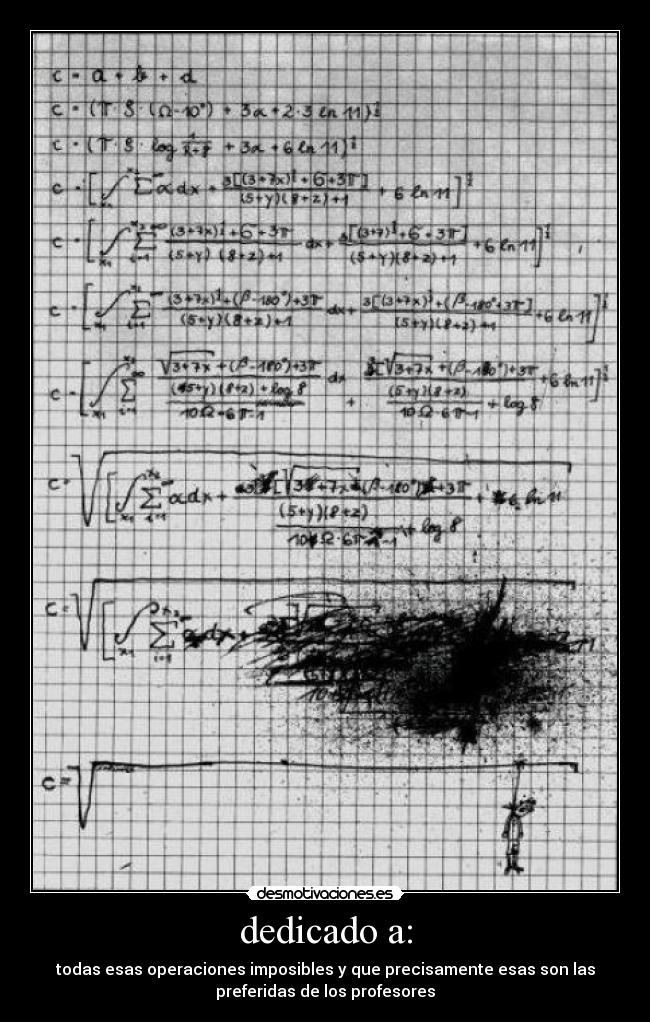 c = a + b + d
c = (π · 8 · (Ω-10°) + 3α + 2·3 ln 11)½
c = (π · 8 · log + 3α + 6 ln 11)½
c = [∫ Σ α dx + 3[(3+7x)½ + 6 + 3π] / (5+y)(8+z)+1 + 6 ln 11]½
c = [∫ Σ (3+7x)½ + 6 + 3π / (5+y)(8+z)+1 dx + 3[(3+7)½ + 6 + 3π] / (5+y)(8+z)+1 + 6 ln 11]½
c = [∫ Σ (3+7x)½ + (β-180°) + 3π / (5+y)(8+z)+1 dx + 3[(3+7x)½ + (β-180°+3π] / (5+y)(8+z)+1 + 6 ln 11]½
c = [∫ Σ √3+7x + (β-180°)+3π / (5+y)(8+z) + log 8 / 10Ω+6π-1 dx + [√3+7x + (β-180°)+3π / (5+y)(8+z) / 10Ω·6π-1 + log 8 + 6 ln 11]½
c = √[∫ Σ α dx + [√3+7x (β-180°)+3π / (5+y)(8+z) / 10 Ω·6π-1 + log 8 + 6 ln 11
c = √[∫ Σ dx +
c = √
desmotivaciones.es
dedicado a:
todas esas operaciones imposibles y que precisamente esas son las
preferidas de los profesores